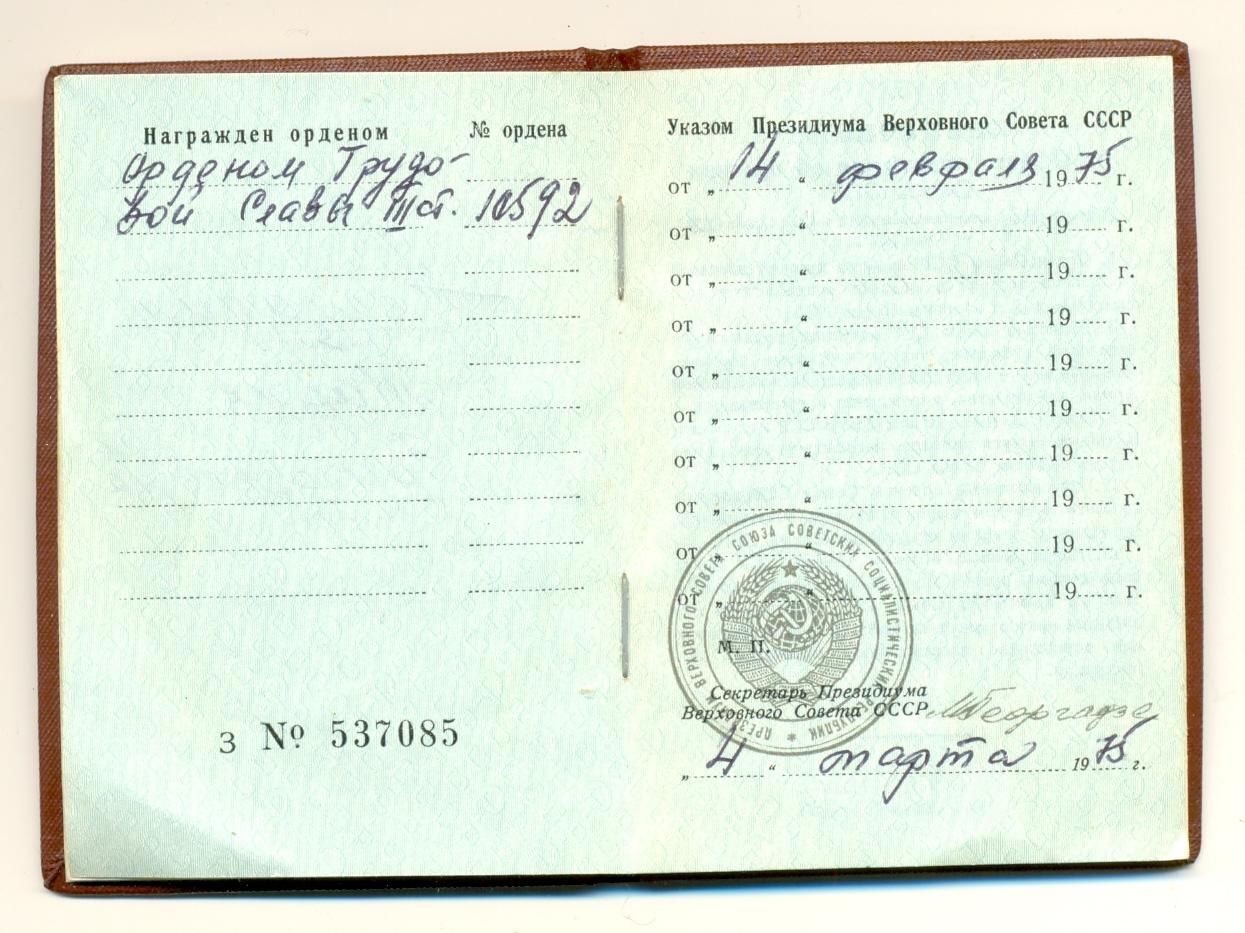 Награжден орденом № ордена
Орденом Трудо-
вой Славы III ст. 10592
З № 537085
Указом Президиума Верховного Совета СССР
от „14“ февраля 1975 г.
от „ “ 19 г.
от „ “ 19 г.
от „ “ 19 г.
от „ “ 19 г.
от „ “ 19 г.
от „ “ 19 г.
от „ “ 19 г.
от „ “ 19 г.
от „ “ 19 г.
ПРЕЗИДИУМ ВЕРХОВНОГО СОВЕТА СОЮЗА СОВЕТСКИХ СОЦИАЛИСТИЧЕСКИХ РЕСПУБЛИК
М. П.
Секретарь Президиума
Верховного Совета СССР МГеоргадзе
„4“ марта 1975 г.